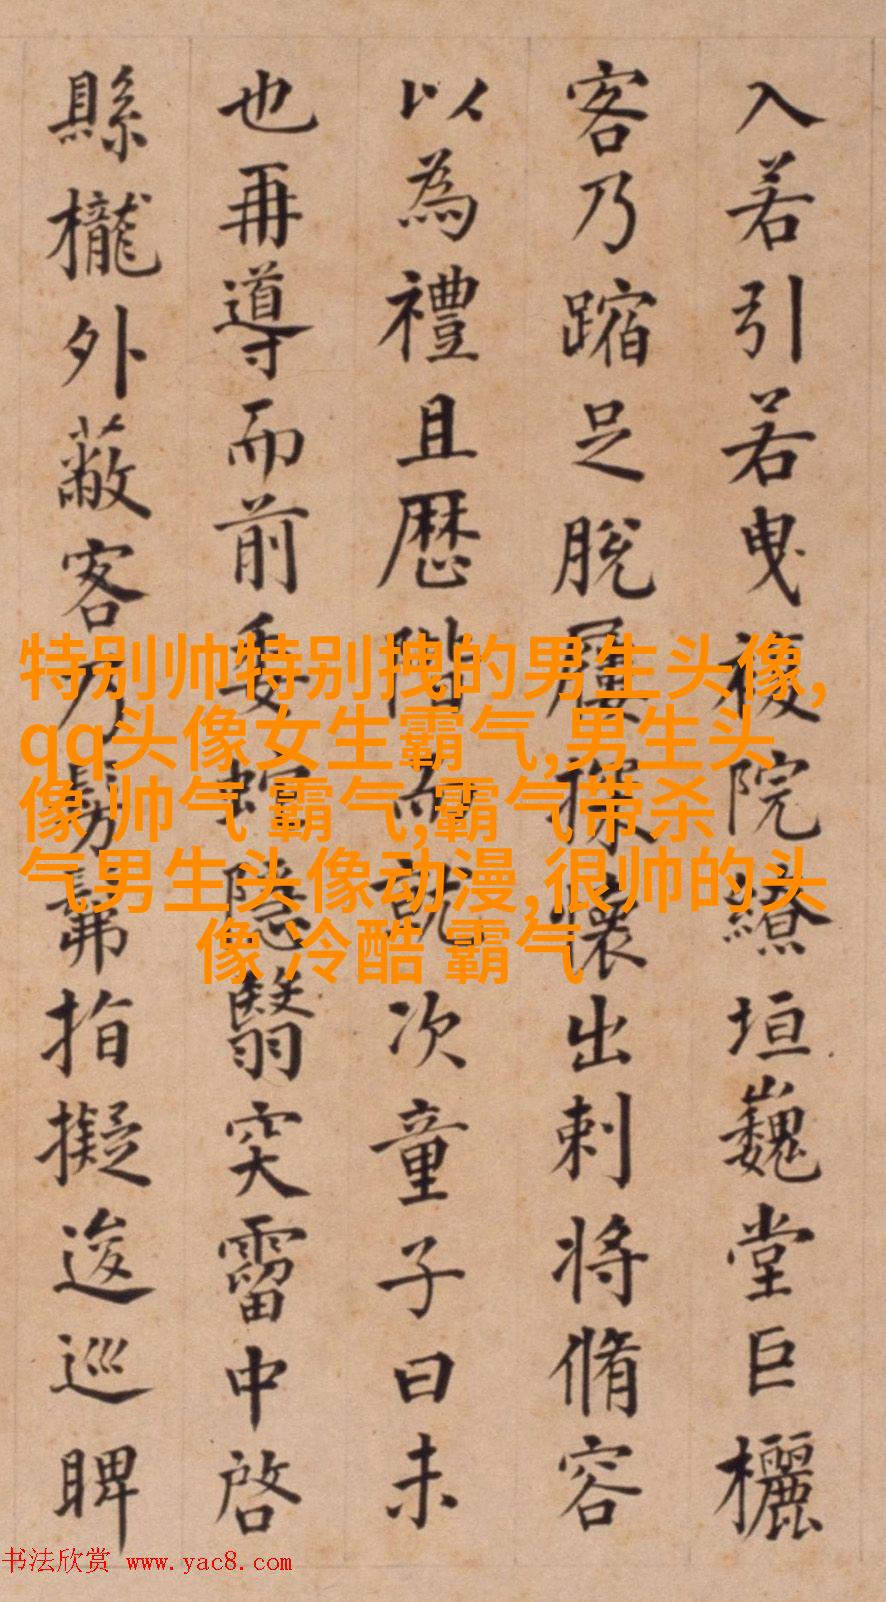 入若引若曳複院繚垣巍堂巨欐
客乃蹜足脫屨探懷出刺將脩容
以為禮且歷階而就次童子曰未
也再導而前委蛇隱翳突霤中啓
縣櫳外蔽客乃髣髴指擬逡巡睥
特别帅特别拽的男生头像,
qq头像女生霸气,男生头
像 帅气 霸气,霸气带杀
气男生头像动漫,很帅的头
像 冷酷 霸气
书法欣赏 www.yac8.com